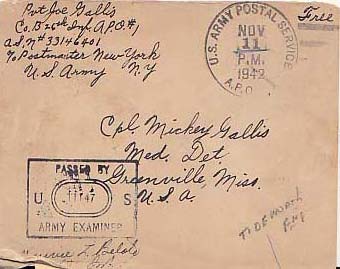 Pvt Joe Gallis
Co. B 26th Inf. A.P.O. #1
A.S.N# 33146401
c/o Postmaster New York
U.S. Army N.Y
U.S. ARMY POSTAL SERVICE
NOV
11
P.M.
1942
A.P.O.
Free
Cpl. Mickey Gallis
Med. Det.
Greenville, Miss.
U.S.A.
PASSED BY
U S
ARMY EXAMINER